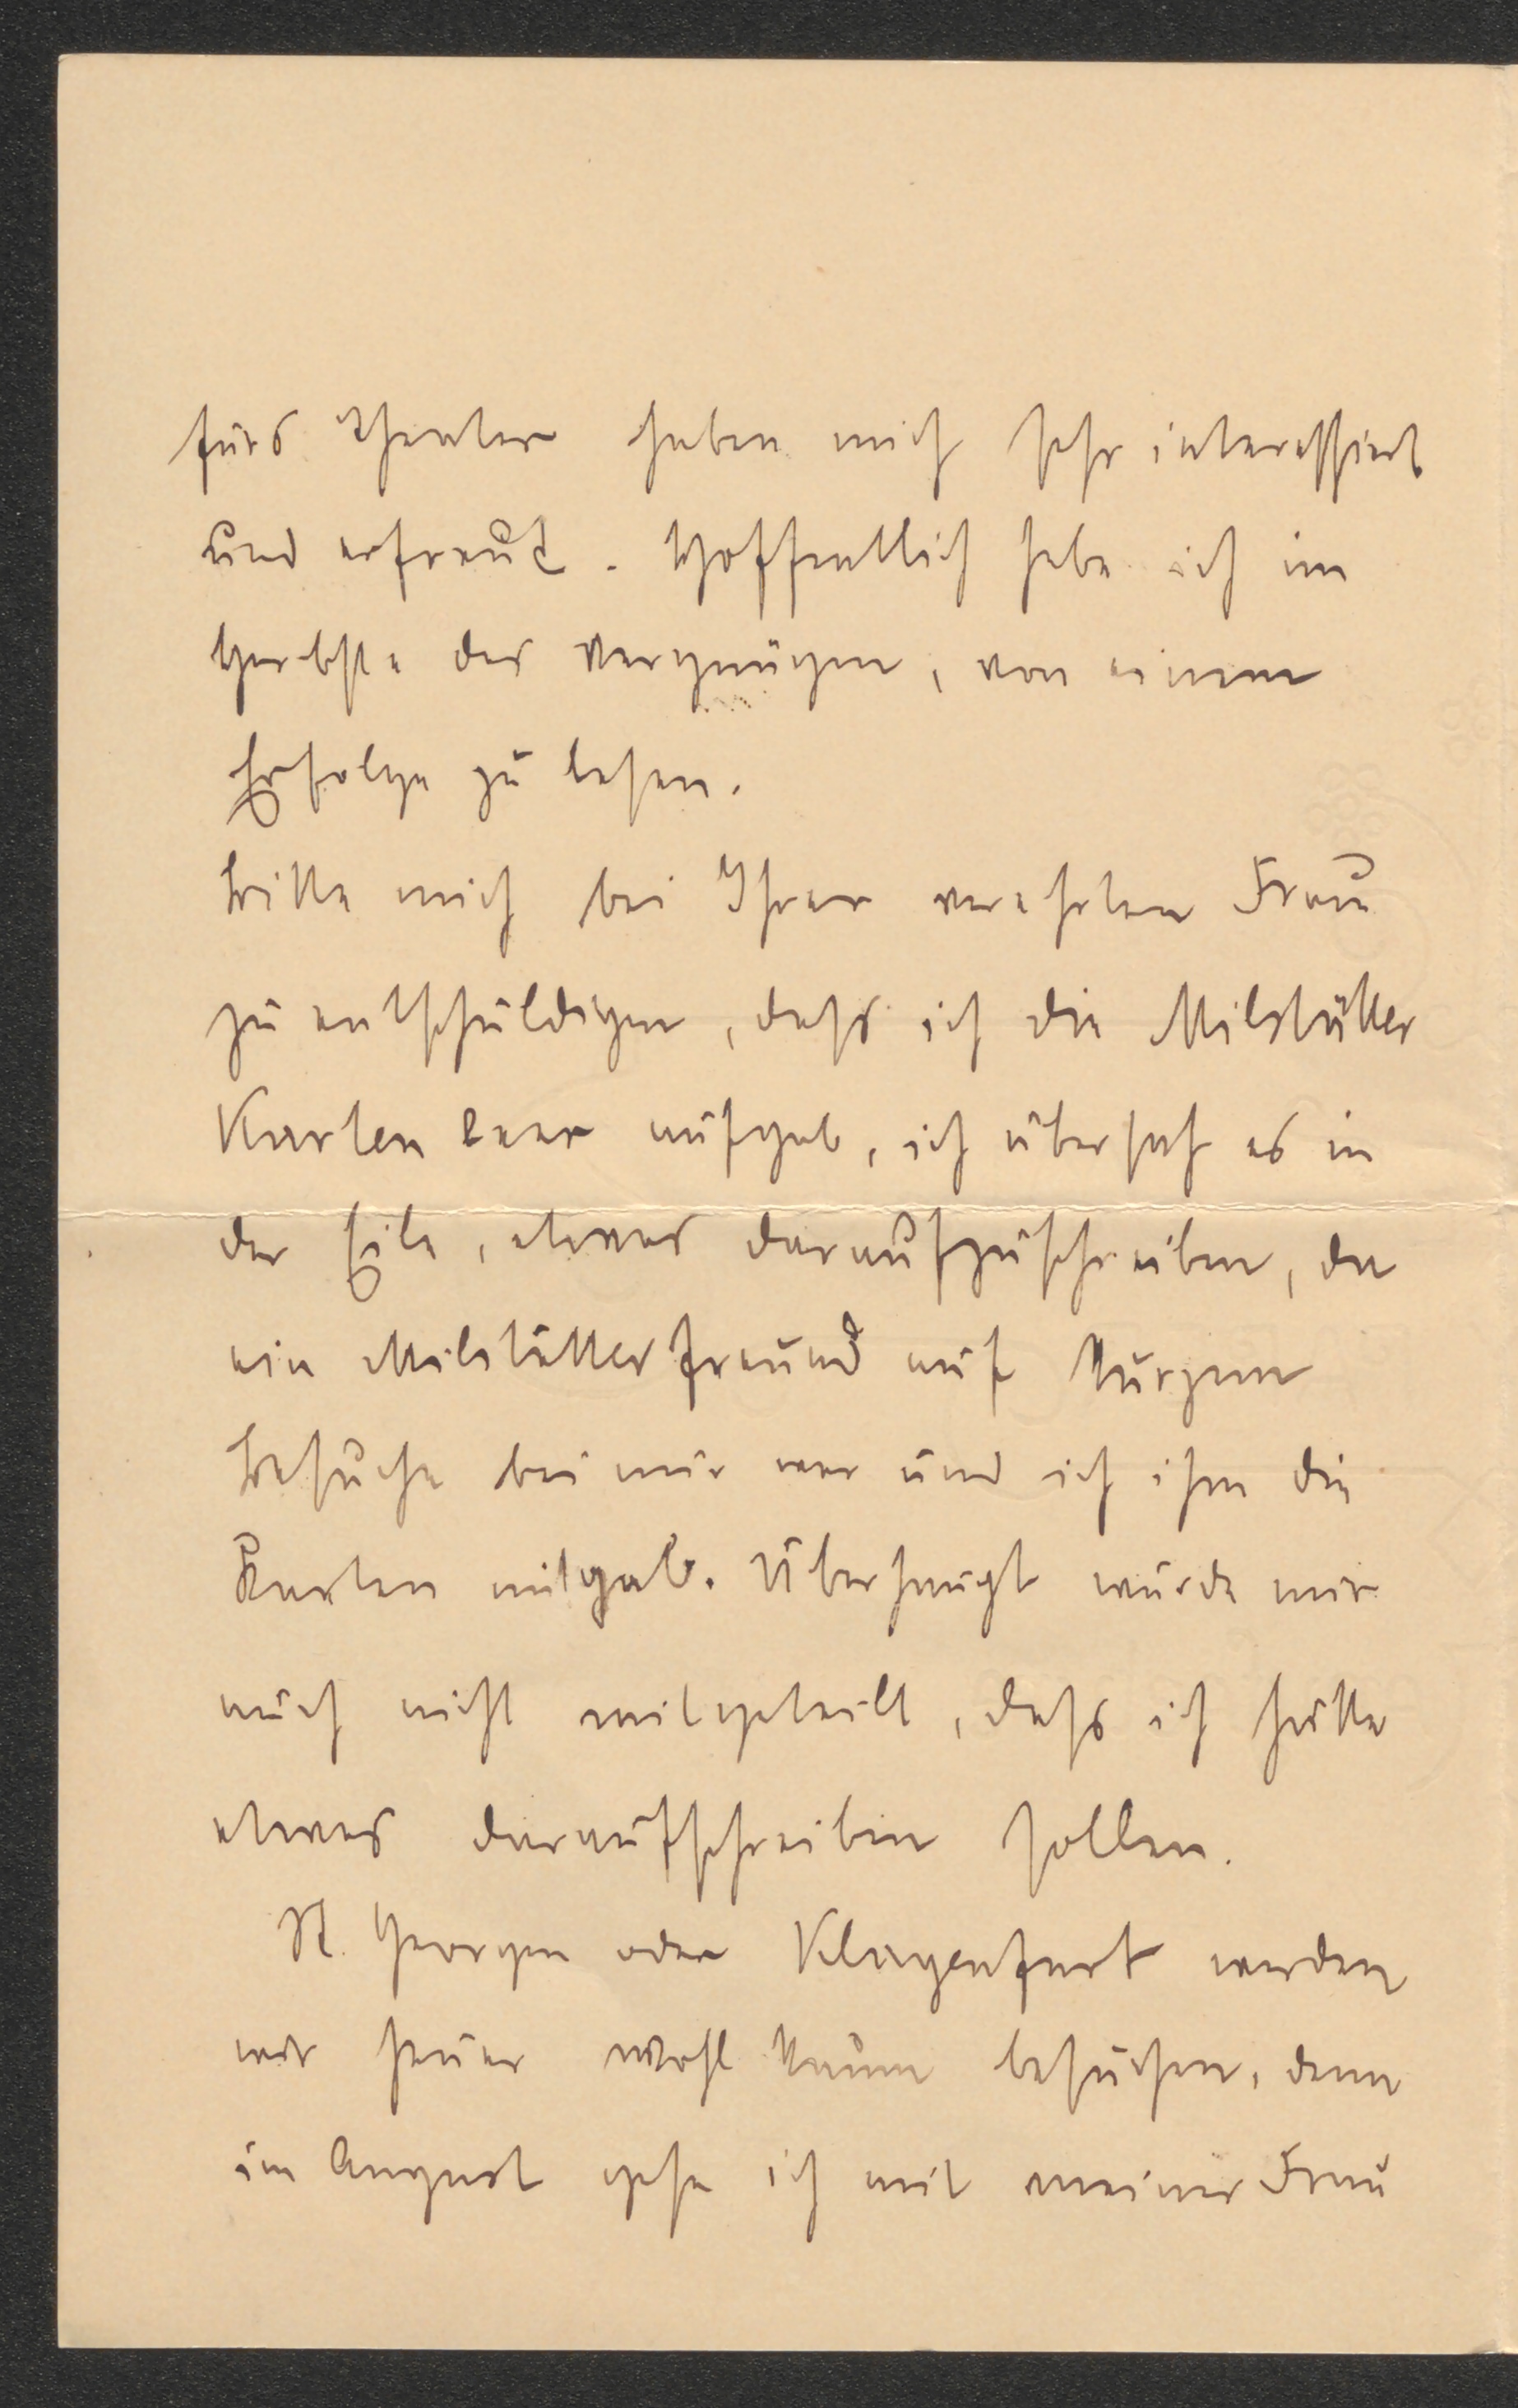 fürs Theater haben mich sehr interessiert
und erfreut. Hoffentlich habe ich im
Herbste das Vergnügen, von einem
Erfolge zu lesen.
Bitte mich bei Ihrer verehrten Frau
zu entschuldigen, dass ich die Milstätter
Karten leer aufgab, ich übersah es in
der Eile, etwas daraufzuschreiben, da
ein Milstätter Freund auf kurzem
Besuche bei mir war und ich ihm die
Karten mitgab. Überhaupt wurde mir
auch nicht mitgeteilt, dass ich hätte
etwas daraufschreiben sollen.
St. Georgen oder Klagenfurt werden
wir heuer wohl kaum besuchen, denn
im August gehe ich mit meiner Frau